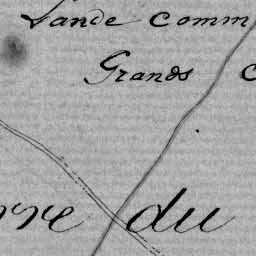 Lande comm
Grands C
rre du